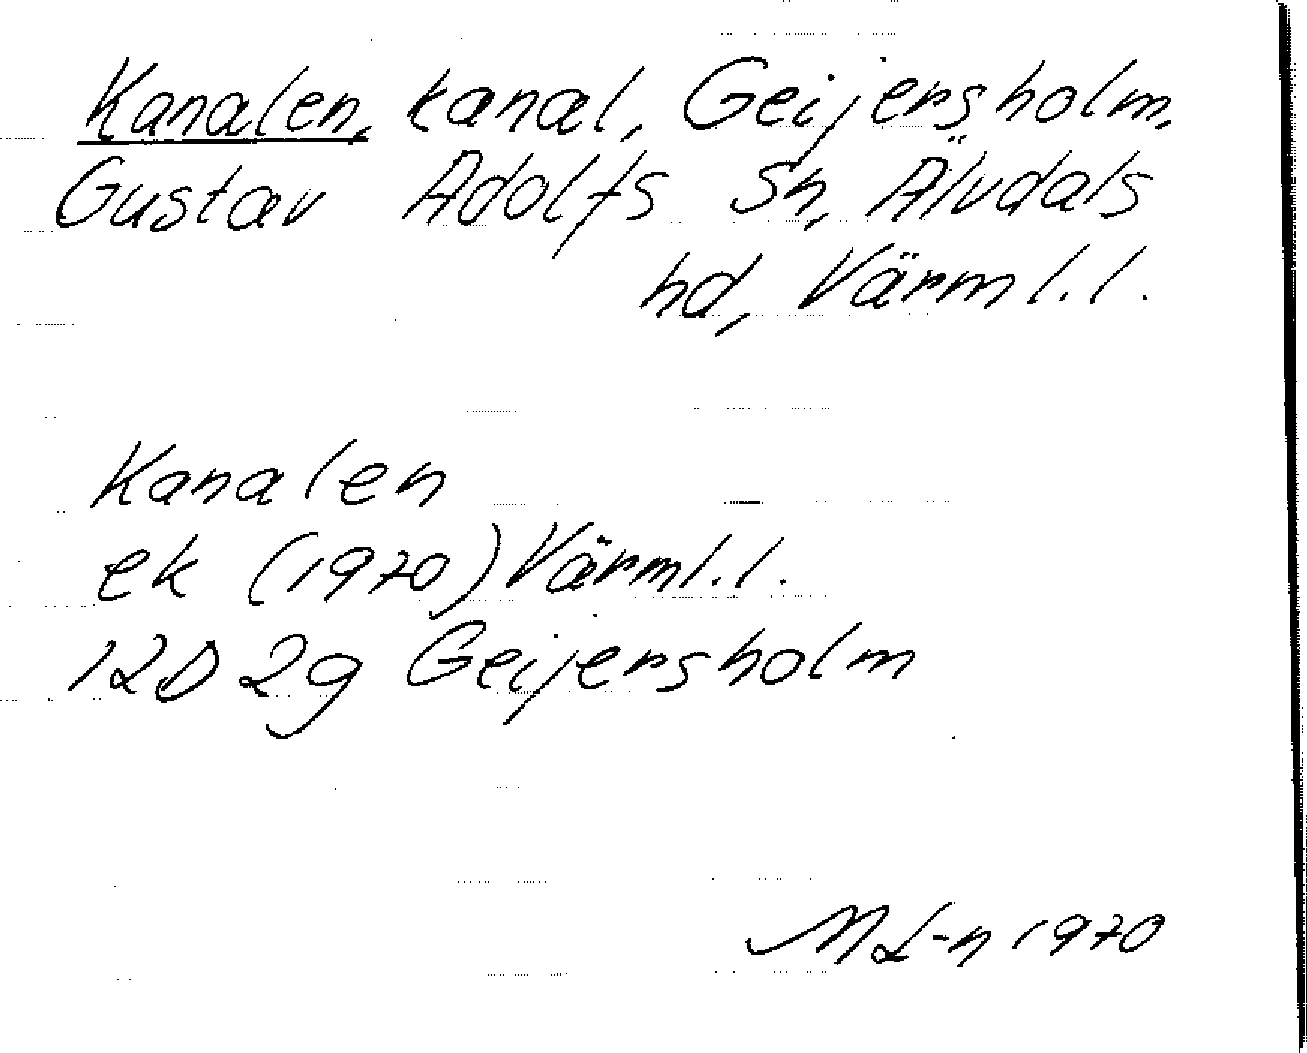 Kanalen, kanal, Geijersholm,
Gustav Adolfs sn, Älvdals
hd, Värml. l.
Kanalen
ek (1970) Värml. l.
12D 2g Geijersholm
M L-n 1970